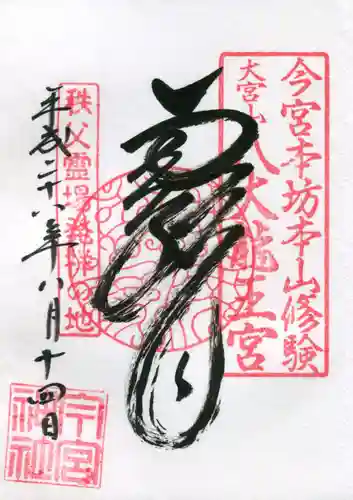 今宮本坊本山修験
大宮山八大龍王宮
龍
秩父霊場発祥の地
平成二十八年八月十四日
今宮
神社